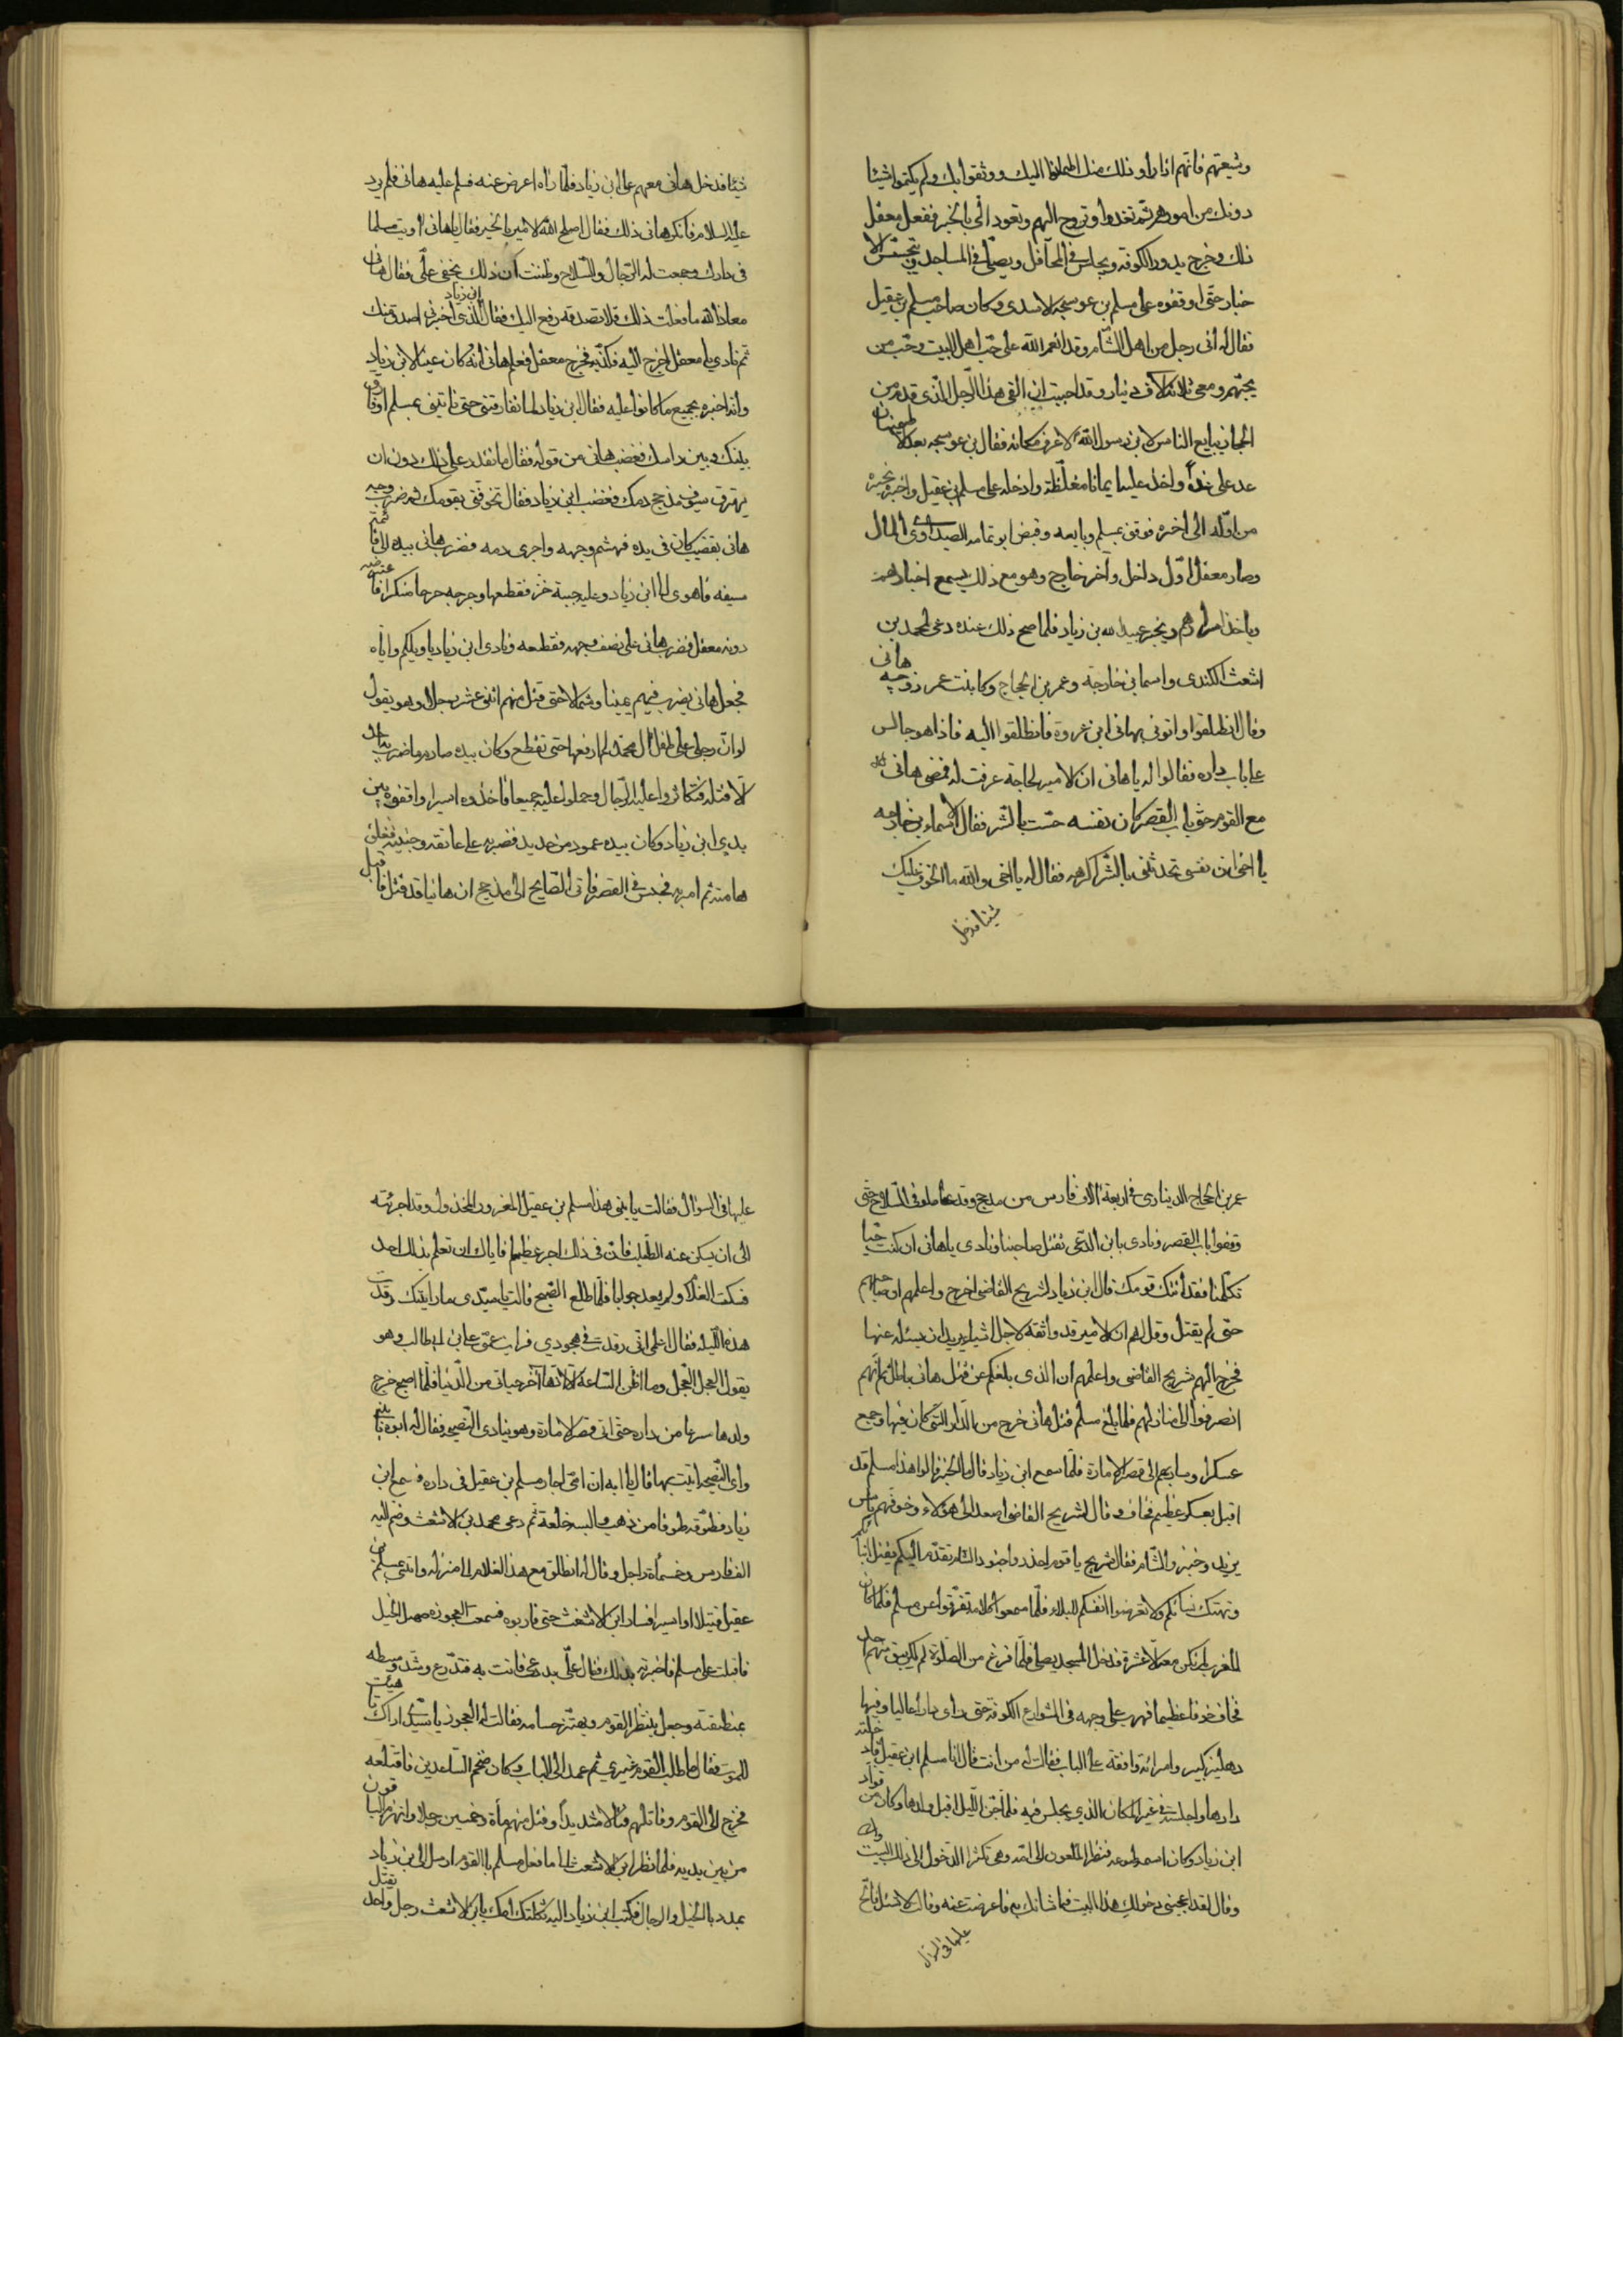 وشيعتهم فانهم اذا راو ذلك منك اطمانوا اليك ووثقوا بك ولم يكتموا شيئا
دونك من امورهم ثم تغدوا وتروح اليهم وتعود الي بالخبر ففعل معقل
ذلك وخرج يدور الكوفة ويجلس في المحافل ويصلي في المساجد ويتجسس الا
خبار حتى اوقفوه على مسلم بن عوسجه الاسدى وكان صاحب مسلم بن عقيل
فقال له انى رجل من اهل الشام وقد انعم الله على حب اهل البيت وحب من
يحبهم ومعى ثلاثة الاف دينار وقد احببت ان القى هذا الرجل الذى قدم من
الحجاز يبايع الناس لابن رسول الله لاعرف مكانه فقال بن عوسجه بعد
عد على غدا واخذ عليه ايمانا مغلظة وادخله على مسلم بن عقيل واخبره بخبره
من اوله الى اخره فوثق بمسلم وبايعه وقبض ابو ثمامه الصيداوى المال
وصار معقل اول داخل واخر خارج وهو مع ذلك يسمع اخبارهم
وياخذ اسرارهم ويخبر عبيد الله بن زياد فلما صح ذلك عنده دعى لمحمد بن
اشعث الكندى واسما بن خارجة وعمر بن الحجاج وكا بنت عمر زوجه هانى
وقال انطلقوا واتونى بهانى ابن عروة فانطلقوا اليه فاذا هو جالس
على باب داره فقالوا له يا هانى ان الامير لحاجة عرفت له فمضى هانى
مع القوم حتى باب القصر كان نفسه حست بالشر فقال لاسماء بن خارجه
يا اخى ان نفسى تحدثنى بالشر اكرهه فقال له يا اخى والله ما اتخوف عليك
شيئا فدخل
شيئا فدخل هانى معهم على ابن زياد فلما راه اعرض عنه فسلم عليه هانى فلم يرد
عليه السلام فانكر هانى ذلك فقال اصلح الله الامير بالخير فقال يا هانى اويت مسلما
فى دارك وجمعت له الرجال والسلاح وظننت ان ذلك يخفى على فقال هانى
معاذ الله ما فعلت ذلك فلا تصدقه رفع اليك فقال ابن زياد الذى اخبرنى اصدق منك
ثم نادى يا معقل اخرج اليه فكذبه فخرج معقل فعلم هانى انه كان عينا لابن زياد
وانه اخبره بجميع ما كانوا عليه فقال ابن زياد لما تفارقنى حتى تاتينى بمسلم او فارق
بينك وبين راسك فغضب هانى من قوله فقال ما تقدر على ذلك دون ان
يهرق سيوف مذحج دمك فغضب ابن زياد فقال تخوفنى بقومك ثم ضرب وجه
هانى بقضيب كان فى يده فهشم وجهه واجرى دمه فضرب هانى بيده الى قائمه
سيفه فاهوى الى ابن زياد وعليه جبة خز فقطعها وجرحه جرحا منكرا
دونه معقل فضرب هانى على نصف وجهه فقطعه ونادى ابن زياد يا ويلكم واياه
فجعل هانى يضرب فيهم يمينا وشمالا حتى قتل منهم اثنى عشر رجلا وهو يقول
لو ان رجلى على طفل ال محمد لم ارفعها حتى تقطع وكان بيده صارم ما ضرب
الا قتله فتكاثروا عليه الرجال وحملوا عليه جميعا فاخذوه اسيرا واوقفوه بين
يدى ابن زياد وكان بيده عمود من حديد فضربه على عاتقه وجنبيه
هامته ثم امر به فحبس فى القصر فاتى الصايح الى مذحج ان هانيا قد قتل فاقبل
عمر بن الحجاج الد ينادى فى اربعة الاف فارس من مذحج وقد عاملوا فى السلاح حتى
وقفوا باب القصر ونادى يا بن الدعى تقتل صاحبنا ونادى يا هانى ان كنت حيا
تكلمنا فقد اتتك قومك قال ابن زياد لشريح القاضى اخرج واعلمهم ان صاحبهم
حى لم يقتل وقل لهم ان الامير قد واثقه لاجل اشياء يريد ان يسئله عنها
فخرج اليهم شريح القاضى واعلمهم ان الذى بلغكم عن قتل هانى باطل ثم انهم
انصرفوا الى منازلهم فلما بلغ مسلم قتل هانى خرج من الدار التى كان فيها وجمع
عسكرا وسار بهم الى قصر الامارة فلما سمع ابن زياد قال ما الخبر قالوا هذا مسلم قد
اقبل بعسكر عظيم فخاف وقال لشريح القاضى اصعد الى هؤلاء وخوفهم باس
يزيد وخبز والشام فقال شريح يا قوم احذروا جنود الشام تقدم اليكم يقتل
وتهتك نسائكم ولا تعرضوا انفسكم للبلاء فلما سمعوا كلامه تفرقوا عن مسلم فلما كان
المغرب لم يكن معه الا عشرة فدخل المسجد يصلى فلما فرغ من الصلوة لم يبق منهم احد
فخاف خوفا عظيما فهرب على وجهه فى الشوارع الكوفة حتى راى دارا عاليا وفيها
دهليز كبير وامرائة واقفة على الباب فقالت له من انت قال انا مسلم ابن عقيل فادخلته
دارها واجلسته فى غير المكان الذى يجلس فيه فلما جن الليل اقبل ولدها وكان من قواد
ابن زياد وكان اسمه فنظر الملعون الى امه وهى تكثر الدخول الى ذلك البيت
وقال لقد اعجبنى دخولك هذا البيت فما شانك به فاعرضت عنه وقالت لا تسئل فالح
عليها فى السوال
عليها فى السوال فقالت يا بنى هذا مسلم بن عقيل المغرور المخذول وقد اجرئته
الى ان يسكن عنه الطلب فان فى ذلك اجر عظيما فاياك ان تعلم بذلك احد
فسكت الغلام ولم يعد جوابا فلما طلع الصبح قالت يا سيدى ما رايتك رقدت
هذه الليله فقال اعلمى انى رقدت فى هجودى فرايت عمى على ابن ابيطالب وهو
يقول العجل العجل وما اظن الساعة الا انها اخر حياتى من الدنيا فلما اصبح خرج
ولدها مسرعا من داره حتى اتى قصر الامارة وهو ينادى النصيحه فقال له ابوه يا بنى
واى النصيحه اتيت بها قال يا ابه ان امى اجار مسلم بن عقيل فى داره فسمع ابن
زياد فطوقه طوقا من ذهب والبسه خلعة ثم دعى محمد بن الاشعث وضم اليه
الف فارس وخمسمأة راجل وقال له انطلق مع هذا الغلام الى منزله واتنى بمسلم بن
عقيل قتيلا او اسيرا فسار ابن الاشعث حتى قاربوه فسمعت العجوزه صهيل الخيل
فاقبلت على مسلم فاخبرته بذلك فقال على بدرعى فاتت به فتدرع وشد وسطه
بمنطقته وجعل ينتظر القوم ويهتز حسامه فقالت له العجوز يا سيدى اراك تهيأت
للموت فقال لها ما طلب القوم غيرى ثم عمد الى الباب وكان ضخم الساعدين فاقتلعه
فخرج الى القوم وقاتلهم قتالا شديدا وقتل منهم مأة وخمسين رجلا وانهزم الباقون
من بين يديه فلما نظر ابن الاشعث الى ما فعل مسلم بالقوم ارسل الى ابن زياد
يمدد بالخيل والرجال فكتب ابن زياد اليه ثكلتك امك يا بن الاشعث رجل واحد يقتل